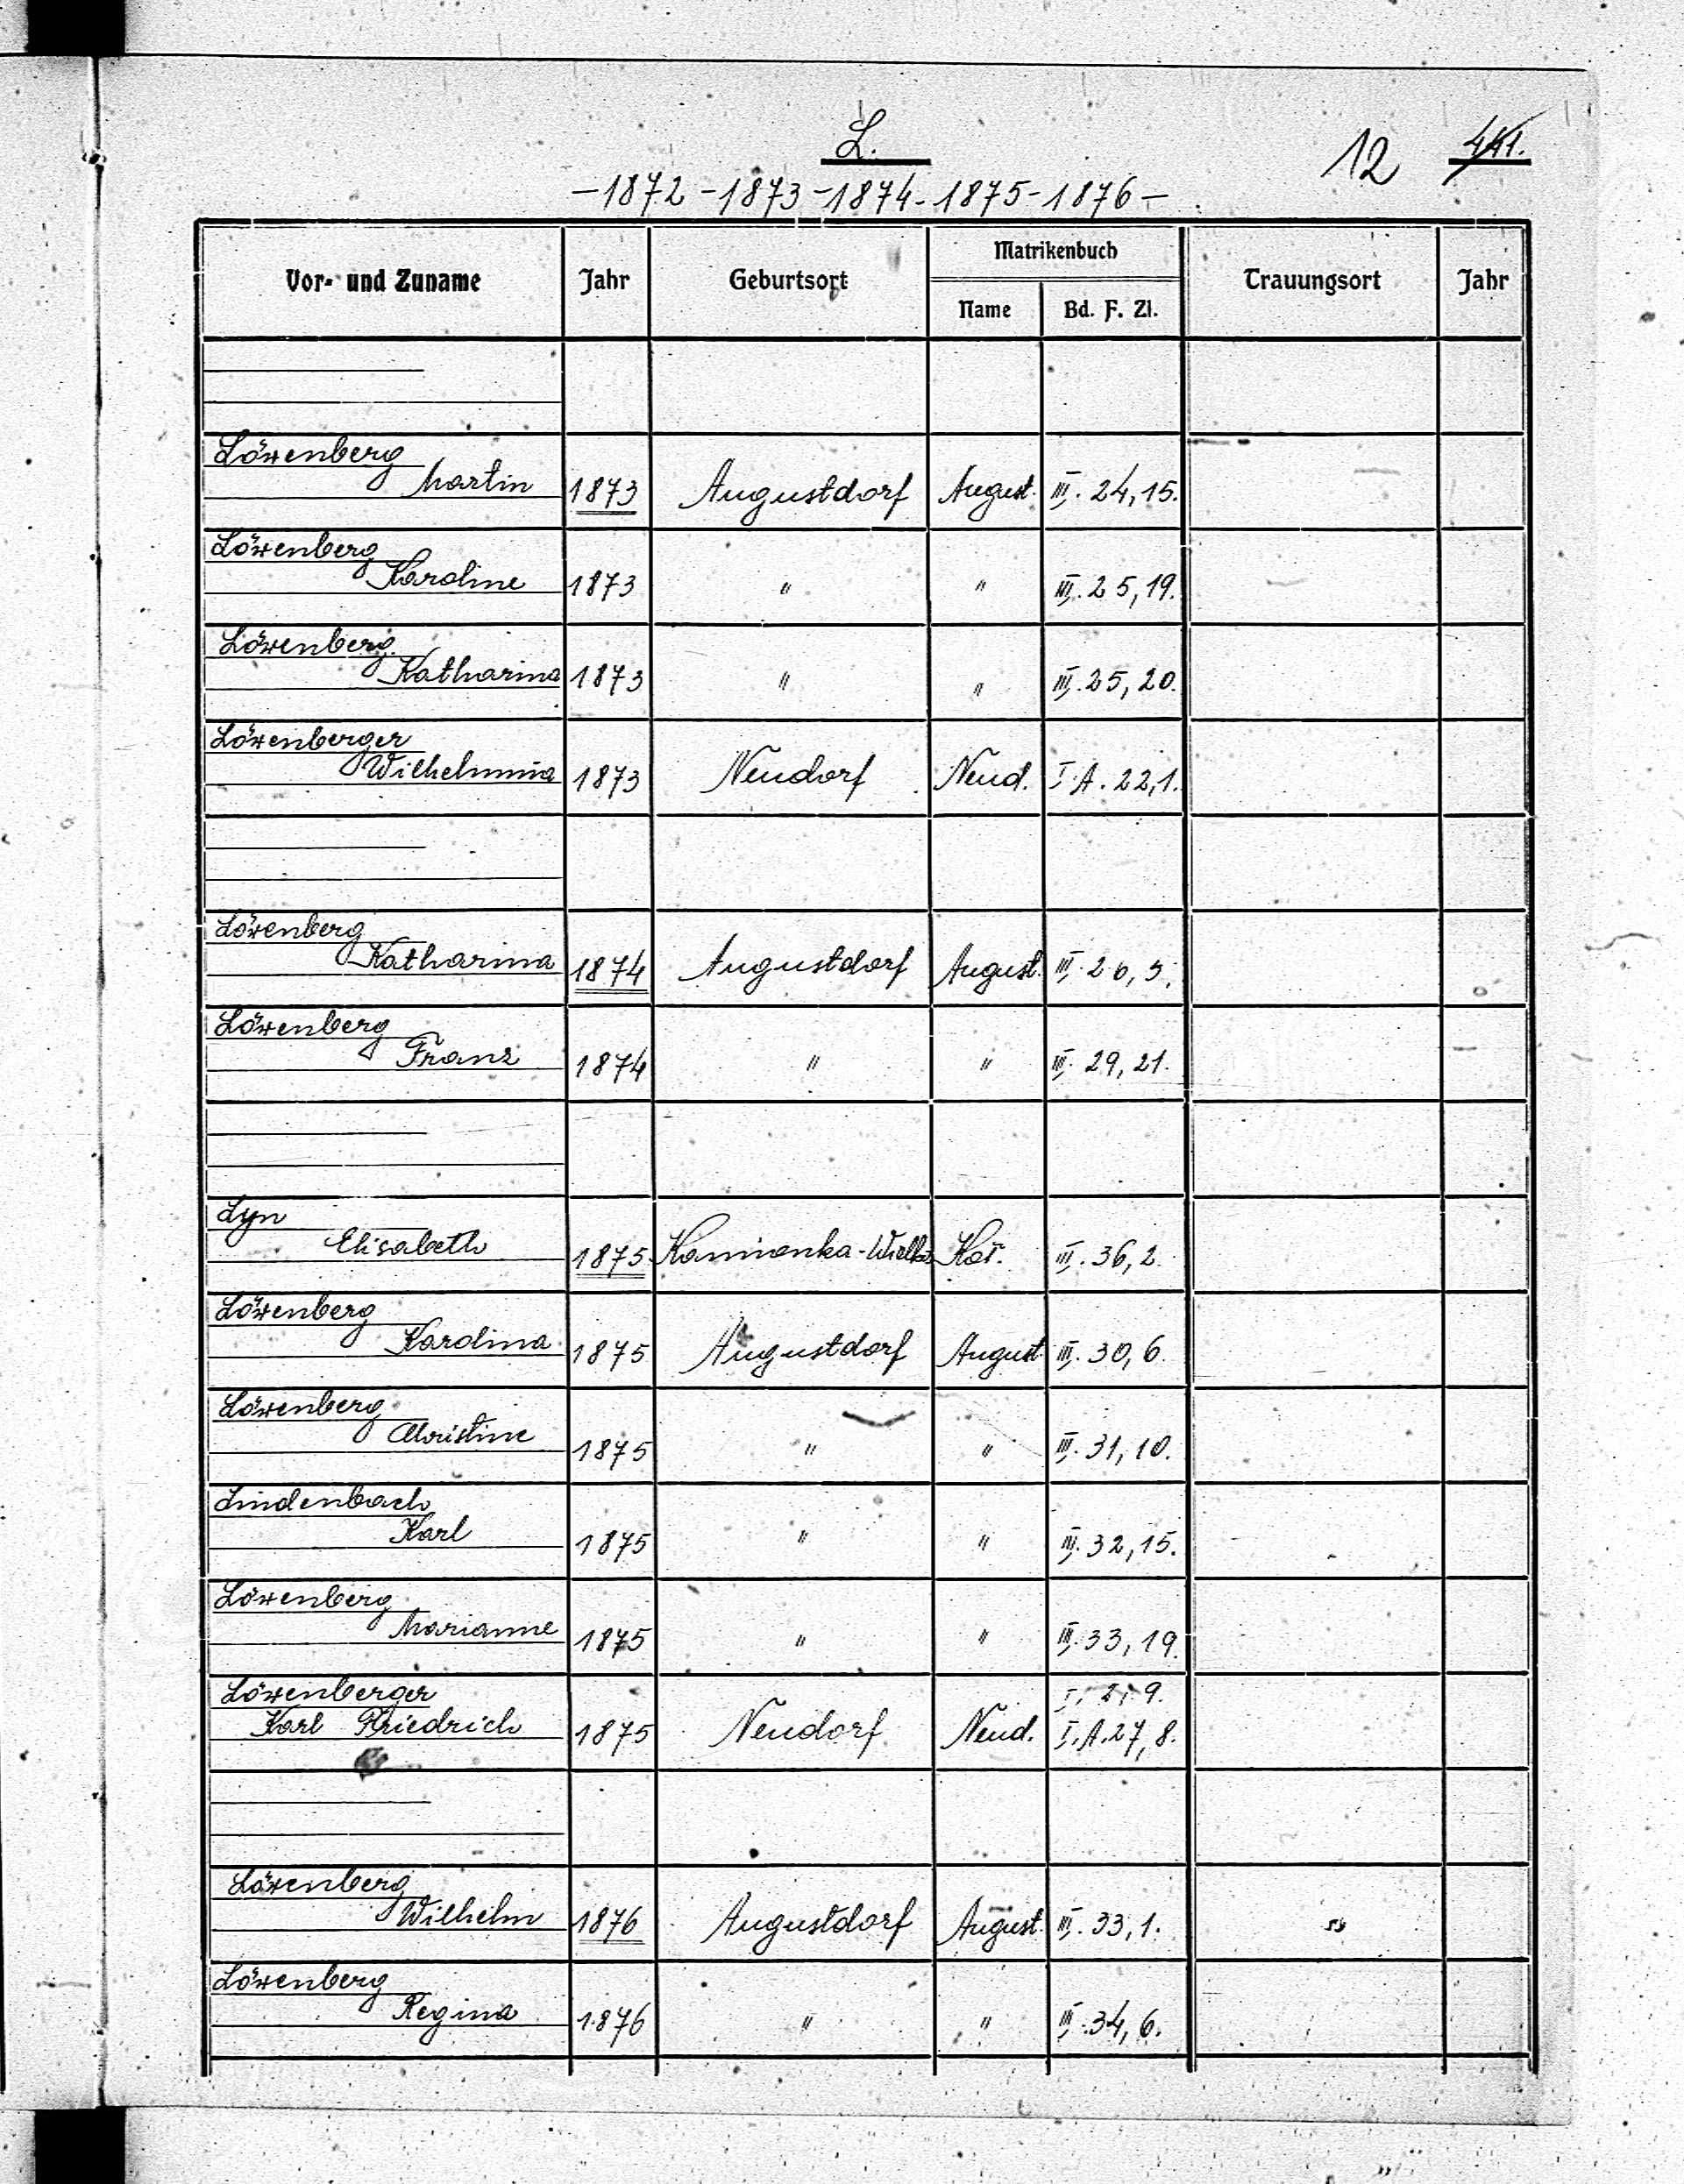 L.
12 441.
-1872-1873-1874-1875-1876-
Vor- und Zuname Jahr Geburtsort Matrikenbuch Trauungsort Jahr
Name Bd. F. Zl.
Löwenberg
Martin 1873 Augustdorf August. III. 24, 15.
Löwenberg
Karoline 1873 " " III. 25, 19.
Löwenberg
Katharina 1873 " " III. 25, 20.
Löwenberger
Wilhelmina 1873 Neudorf Neud. I. A. 22, 1.
Löwenberg
Katharina 1874 Augustdorf August. III. 26, 5.
Löwenberg
Franz 1874 " " III. 29, 21.
Lyn
Elisabeth 1875 Kamionka-Wielka III. 36, 2.
Löwenberg
Karolina 1875 Augustdorf August III. 30, 6.
Löwenberg
Christine 1875 " " III. 31, 10.
Lindenbach
Karl 1875 " " III. 32, 15.
Löwenberg
Marianne 1875 " " III. 33, 19.
Löwenberger I. 21. 9.
Karl Friedrich 1875 Neudorf Neud. I. A. 27, 8.
Löwenberg
Wilhelm 1876 Augustdorf August. III. 33, 1.
Löwenberg
Regina 1876 " " III. 34, 6.